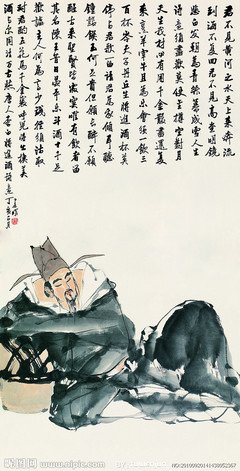 君不見黃河之水天上來奔流
到海不復回君不見高堂明鏡
悲白髮朝為青絲暮成雪人生
得意須盡歡莫使金樽空對月
天生我材必有用千金散盡還復
來烹羊宰牛且為樂會須一飲三
百杯岑夫子丹丘生將進酒杯莫
停與君歌一曲請君為我傾耳聽
鐘鼓饌玉何足貴但願長醉不願
醒古來聖賢皆寂寞唯有飲者留
其名陳王昔日宴平樂斗酒十千恣
歡謔主人何為言少錢徑須沽取
對君酌五花馬千金裘呼兒將出換美
酒與爾同銷萬古愁唐人李白將進酒詩意
丁亥
昵图网 www.nipic.com